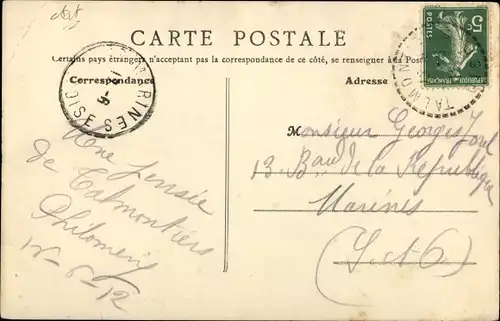 CARTE POSTALE
Certains pays étrangers n'acceptent pas la correspondance de ce côté, se renseigner à la Poste
Correspondance
Adresse
5c
POSTES
MARINES
OISE
TALMON
Une pensée
de Talmontiers
Philomène
12-6-12
Monsieur Georges
13 Bard de la République
Marines
(S et O)